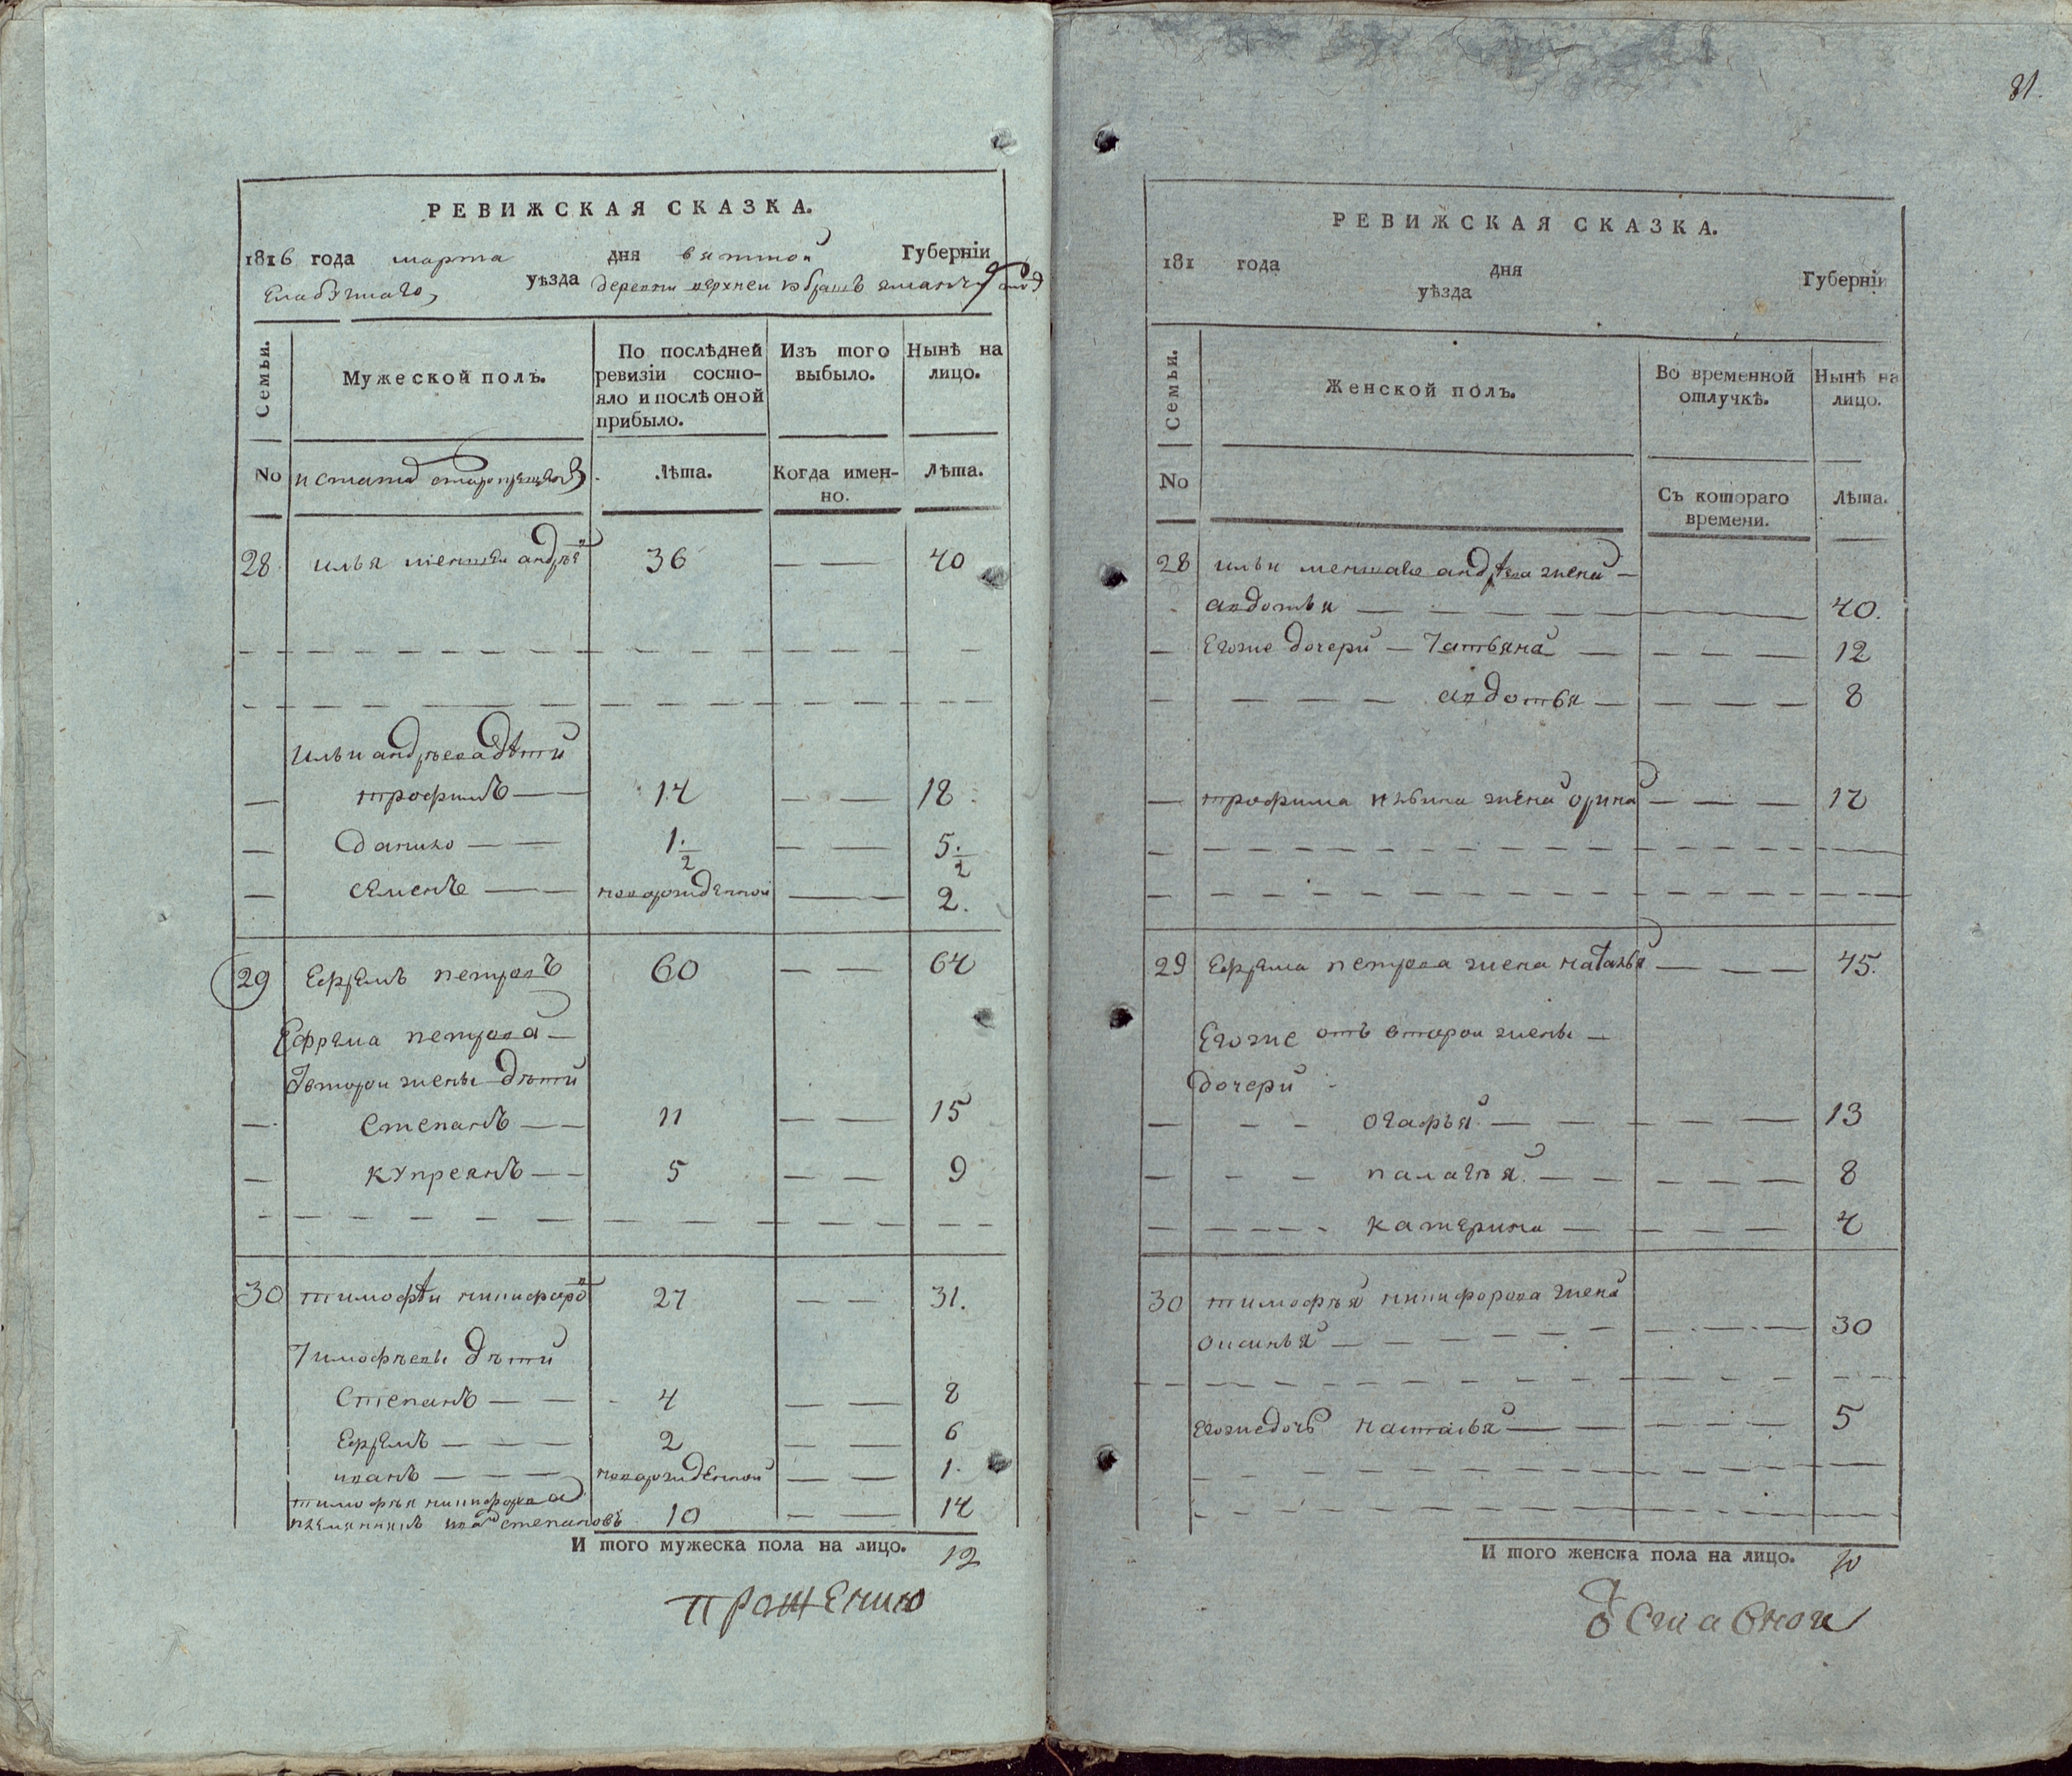 РЕВИЖСКАЯ СКАЗКА.
1816 года марта дня вятской Губерніи
Елабужскаго уѣзда деревни верхней
Семьи.
Мужеской полъ.
По послѣдней ревизіи состо-
яло и послѣ оной
прибыло.
Изъ того
выбыло.
Нынѣ на
лицо.
No
Лѣта.
Когда имен-
но.
Лѣта.
28 илья меншеи андрѣ 36 — — 40
ильи андрѣева дѣти
— трофимъ — — 14 — — 18
— данило — — 1 1/2 — — 5 1/2
— семенъ — — новорожденной — — 2.
29 Ефремъ петровъ 60 — — 64
Ефрема петрова —
второи жены дѣти
— степанъ — — 11 — — 15
— купреянъ — — 5 — — 9
30 тимофѣи никифоро 27 — — 31.
Тимофѣевы дѣти
Степанъ — — 4 — — 8
Ефремъ — — — 2 — — 6
иванъ — — — новорожденной — — 1.
тимофѣя никифорова
племянникъ иван степановъ 10 — — 14
И того мужеска пола на лицо. 12
81.
РЕВИЖСКАЯ СКАЗКА.
181 года дня Губерніи
уѣзда
Семьи.
Женской полъ.
Во временной
отлучкѣ.
Нынѣ на
лицо.
No
Съ котораго
времени.
Лѣта.
28 ильи меншаво андрѣева жена —
авдотья — — 40.
— Егоже дочери — Татьяна — — — — 12
— — — — — авдотья — — — — 8
— трофима ильина жена орина — — — 17
29 Ефрема петрова жена наталья — — — 45.
Егоже отъ второи жены —
дочери
— — — огафья — — — — — 13
— — — палагѣя — — — — — 8
— — — — — катерина — — — — 4
30 тимофѣя никифорова жена
оксинья — — — — — 30
Егоже дочь настасья — — — — — 5
И того женска пола на лицо. 10